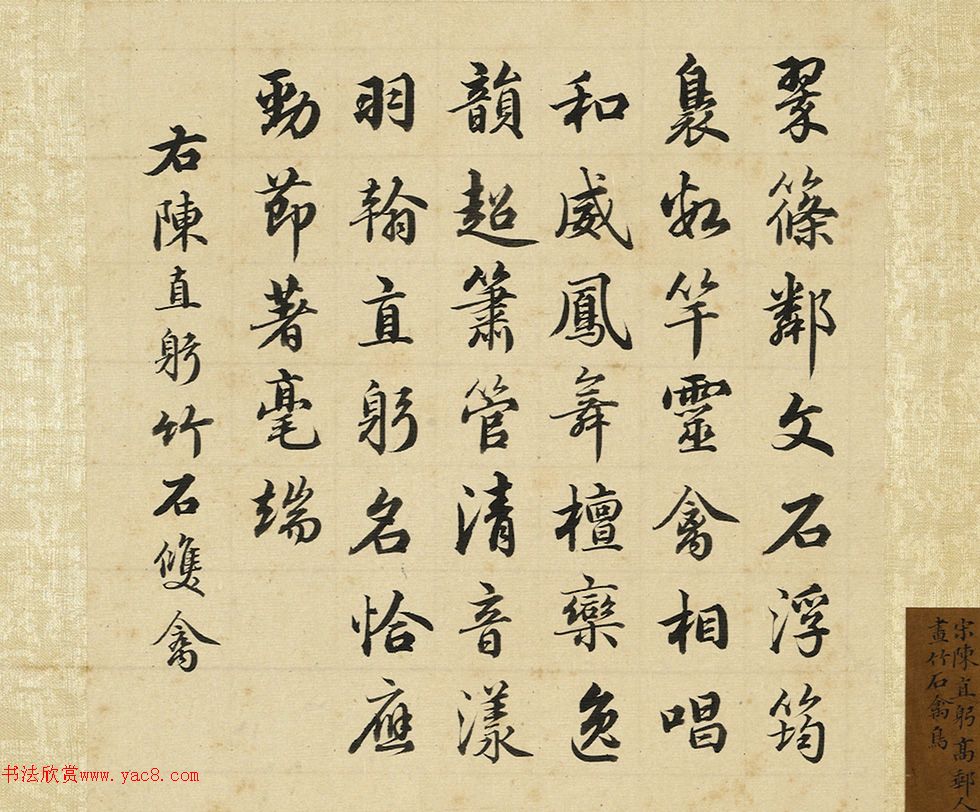 翠篠鄰文石浮筠
裊數竿靈禽相唱
和威鳳舞檀欒逸
韻超簫管清音漾
羽翰直躬名恰應
勁節著毫端
右陳直躬竹石雙禽
宋陳直躬高郵人
畫竹石禽鳥
书法欣赏www.yac8.com